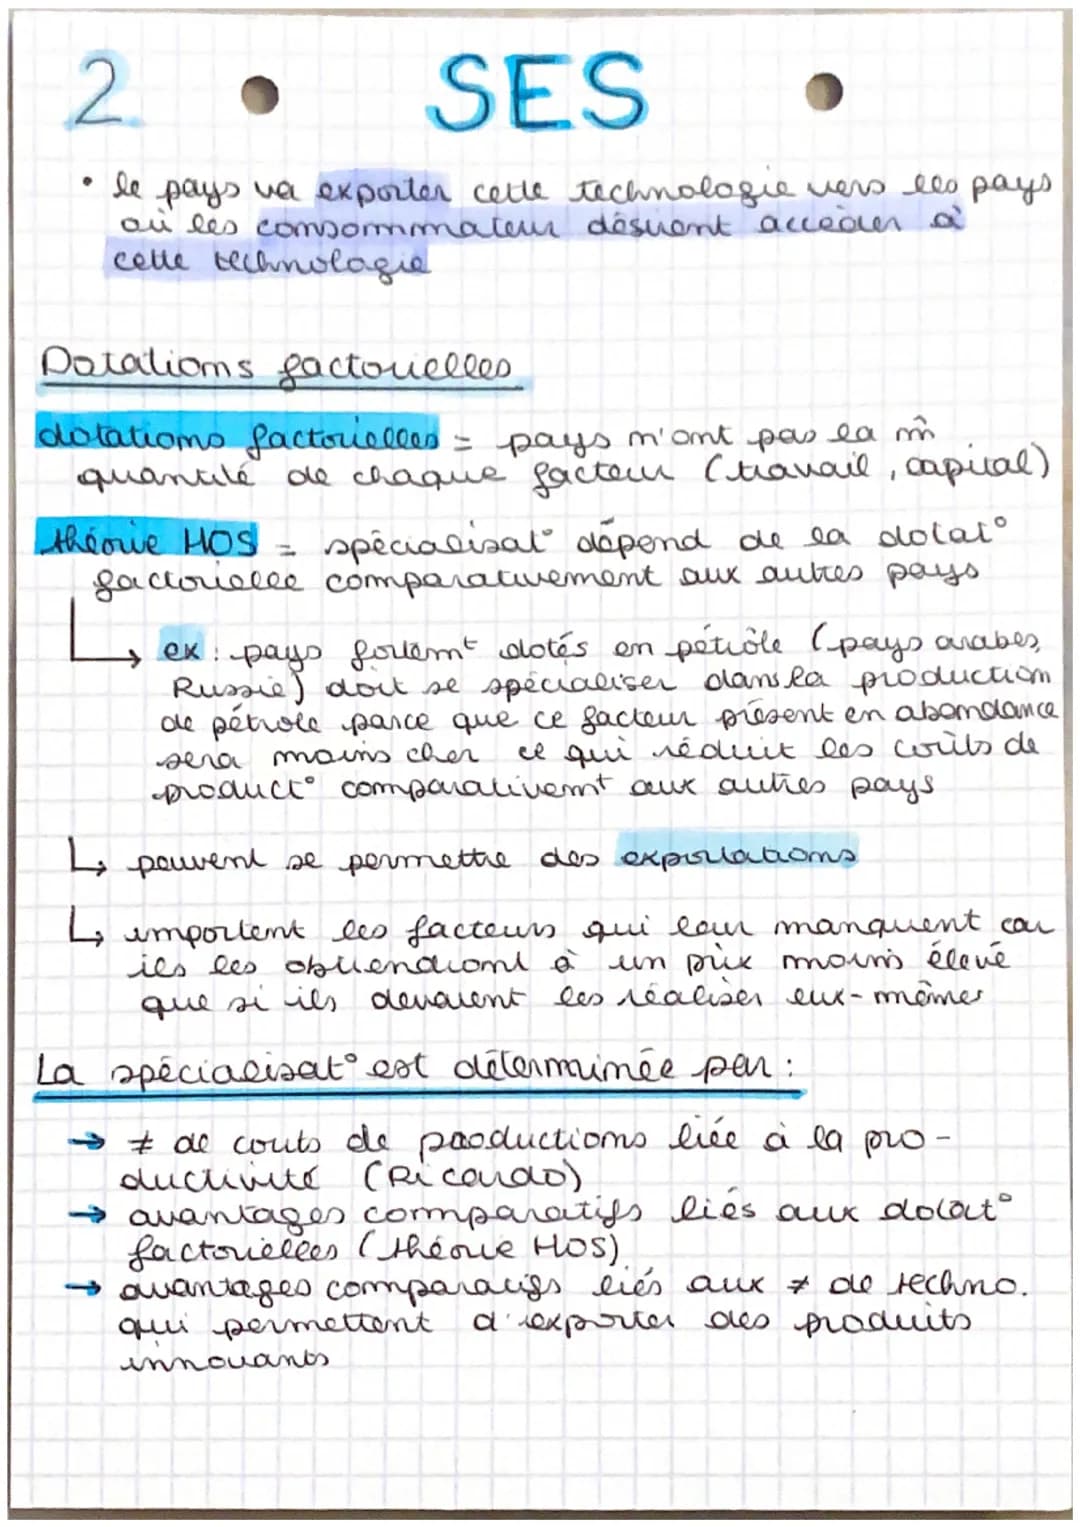 2 SES
• le pays va exporter cette technologie vers les pays
où les consommateur désirent accéder à
cette technologie
Dotations factorielles
dotations factorielles = pays n'ont pas la m̂
quantité de chaque facteur (travail, capital)
théorie HOS = spécialisat° dépend de la dotat°
factorielle comparativement aux autres pays
↳ ex : pays fortemt dotés en pétrole (pays arabes,
Russie) doit se spécialiser dans la production
de pétrole parce que ce facteur présent en abondance
sera moins cher ce qui réduit les coûts de
product° comparativemt aux autres pays
↳ peuvent se permettre des exportations
↳ importent les facteurs qui leur manquent car
ils les obtiendront à un prix moins élevé
que si ils devaient les réaliser eux-mêmes
La spécialisat° est déterminée par :
→ ≠ de couts de productions liée à la pro-
ductivité (Ricardo)
→ avantages comparatifs liés aux dotat°
factorielles (théorie HOS)
→ avantages comparatifs liés aux ≠ de techno.
qui permettent d'exporter des produits
innovants